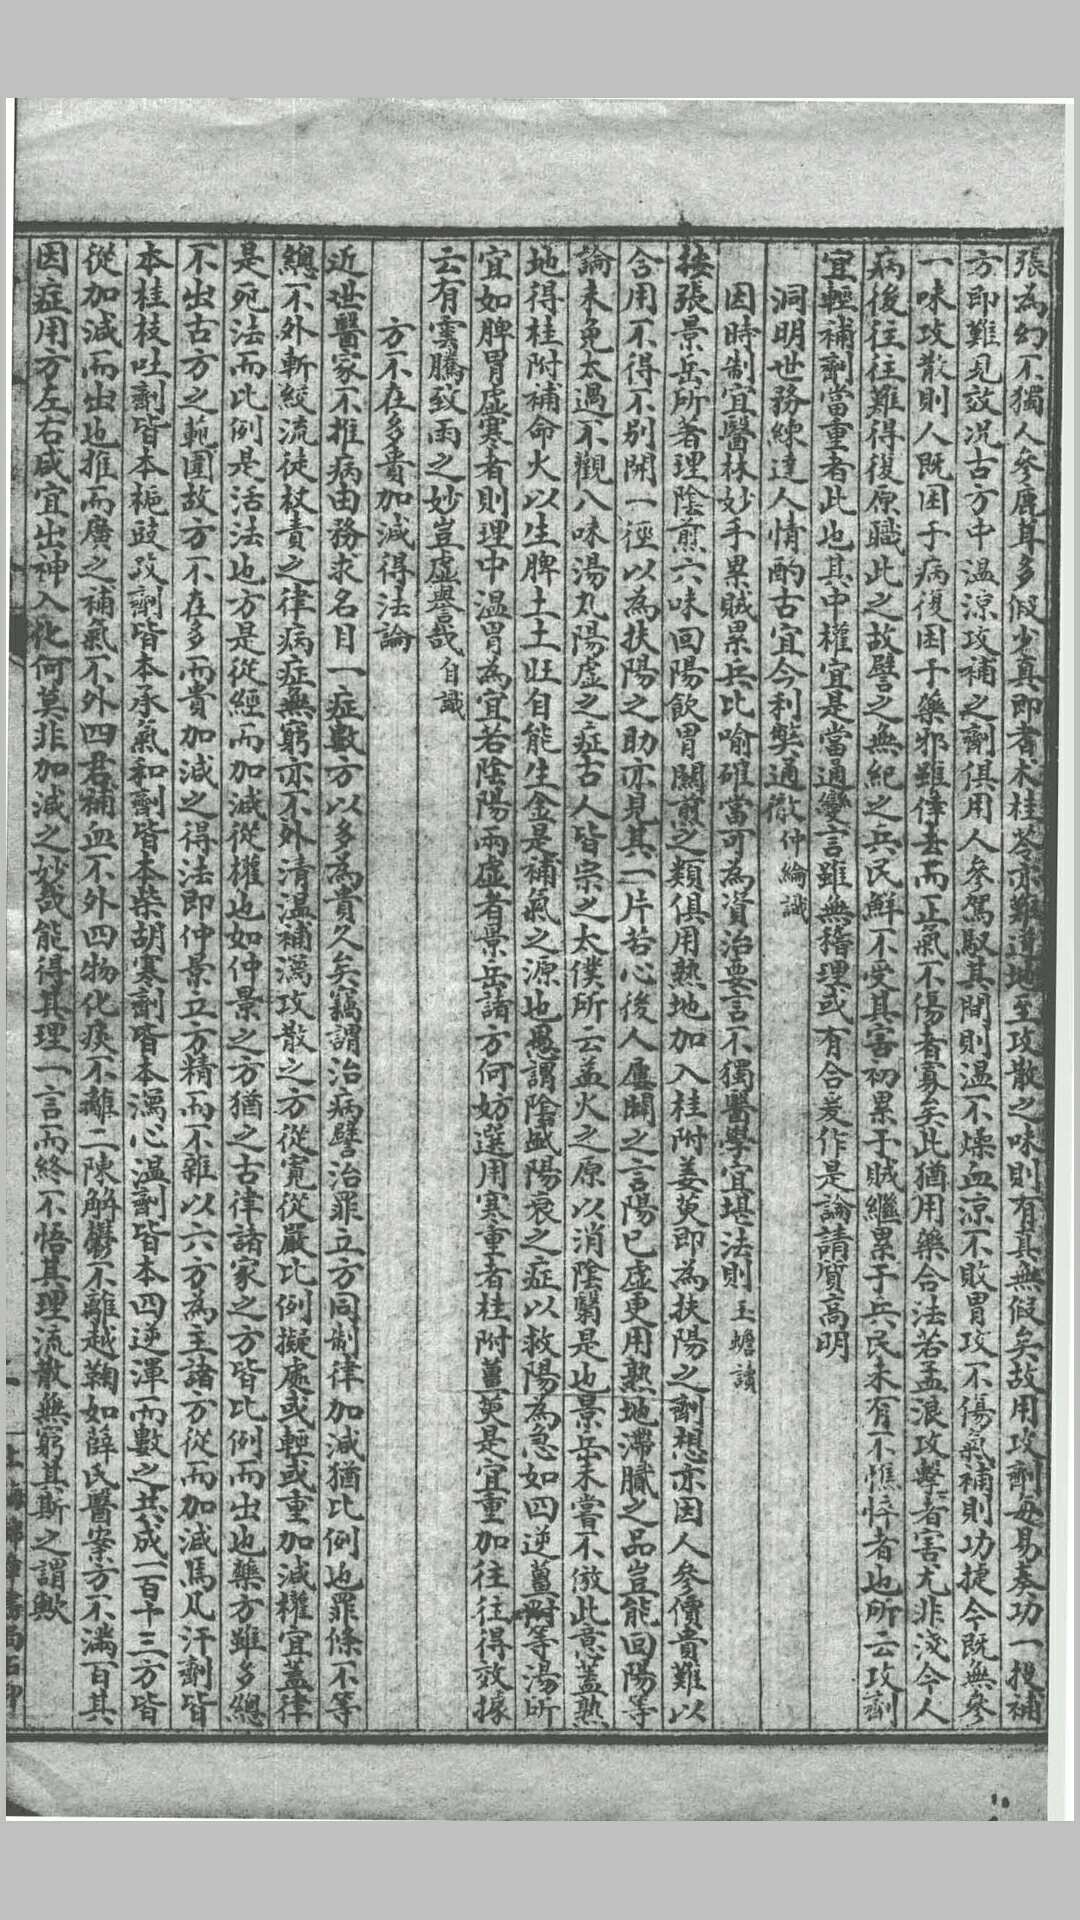 張為幻不獨人參鹿茸多假少真即耆术桂苓亦難道地至攻散之味則有真無假矣故用攻劑每易奏功一投補
方即難見效况古方中温涼攻補之劑俱用人參駕馭其間則温不燥血涼不敗胃攻不傷氣補則功捷今既無參
一味攻散則人既困于病復困于藥邪雖倖去而正氣不傷者寡矣此猶用藥合法若孟浪攻擊者害尤非淺今人
病後往往難得復原職此之故譬之無紀之兵民鮮不受其害初累于賊繼累于兵民未有不憔悴者也所云攻劑
宜輕補劑當重者此也其中權宜是當通變言雖無稽理或有合爰作是論請質高明
洞明世務練達人情酌古宜今利獘通徹仲綸識
因時制宜醫林妙手累賊累兵比喻確當可為資治要言不獨醫學宜堪法則玉蟾讀
按張景岳所著理陰煎六味回陽飲胃關煎之類俱用熟地加入桂附姜萸即為扶陽之劑想亦因人參價貴難以
合用不得不別開一徑以為扶陽之助亦見其一片苦心後人屢闢之言陽已虛更用熟地滯膩之品豈能回陽等
論未免太過不觀八味湯丸陽虛之症古人皆宗之太僕所云益火之原以消陰翳是也景岳未嘗不倣此意蓋熟
地得桂附補命火以生脾土土旺自能生金是補氣之源也愚謂陰盛陽衰之症以救陽為急如四逆薑附等湯所
宜如脾胃虛寒者則理中温胃為宜若陰陽兩虛者景岳諸方何妨選用寒重者桂附薑萸是宜重加往往得效據
云有雲騰致雨之妙豈虛譽哉自識
方不在多貴加減得法論
近世醫家不推病由務求名目一症數方以多為貴久矣竊謂治病譬治罪立方同制律加減猶比例也罪條不等
總不外斬絞流徒杖責之律病症無窮亦不外清温補瀉攻散之方從寛從嚴比例擬處或輕或重加減權宜蓋律
是死法而比例是活法也方是從經而加減從權也如仲景之方猶之古律諸家之方皆比例而出也藥方雖多總
不出古方之範圍故方不在多而貴加減之得法即仲景立方精而不雜以六方為主諸方從而加減焉凡汗劑皆
本桂枝吐劑皆本梔豉攻劑皆本承氣和劑皆本柴胡寒劑皆本瀉心温劑皆本四逆渾而數之共成一百十三方皆
從加減而出也推而廣之補氣不外四君補血不外四物化痰不離二陳解鬱不離越鞠如薛氏醫案方不滿百其
因症用方左右咸宜出神入化何莫非加減之妙哉能得其理一言而終不悟其理流散無窮其斯之謂歟